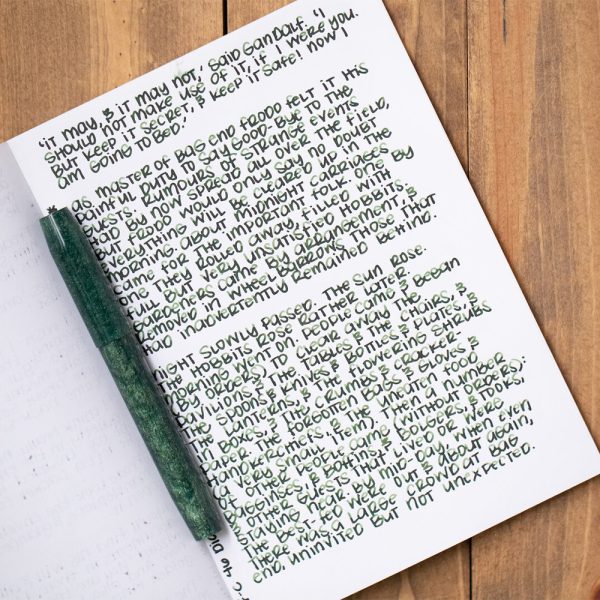 'it may, & it may not,' said Gandalf. 'I
should not make use of it, if I were you.
But keep it secret, & keep it safe! Now I
am going to bed.'
As master of Bag End Frodo felt it his
painful duty to say good-bye to the
guests. Rumours of strange events
had by now spread all over the field,
but Frodo would only say no doubt
everything will be cleared up in the
morning. About midnight carriages
came for the important folk. One by
one they rolled away, filled with
full but very unsatisfied hobbits.
Gardeners came by arrangement, &
removed in wheel-burrows those that
had inadvertently remained behind.
Night slowly passed. The sun rose.
The hobbits rose rather later.
Morning went on. People came & began
(by orders) to clear away the
pavilions & the tables & the chairs, &
the spoons & knives & bottles & plates, &
the lanterns, & the flowering shrubs
in boxes, & the crumbs & cracker-
paper, the forgotten bags & gloves &
handkerchiefs, & the uneaten food
(a very small item). Then a number
of other people came (without orders):
Bagginses, & Boffins, & Bolgers, & Tooks,
& other guests that lived or were
staying near. By mid-day, when even
the best-fed were out & about again,
there was a large crowd at Bag
End, uninvited but not unexpected.